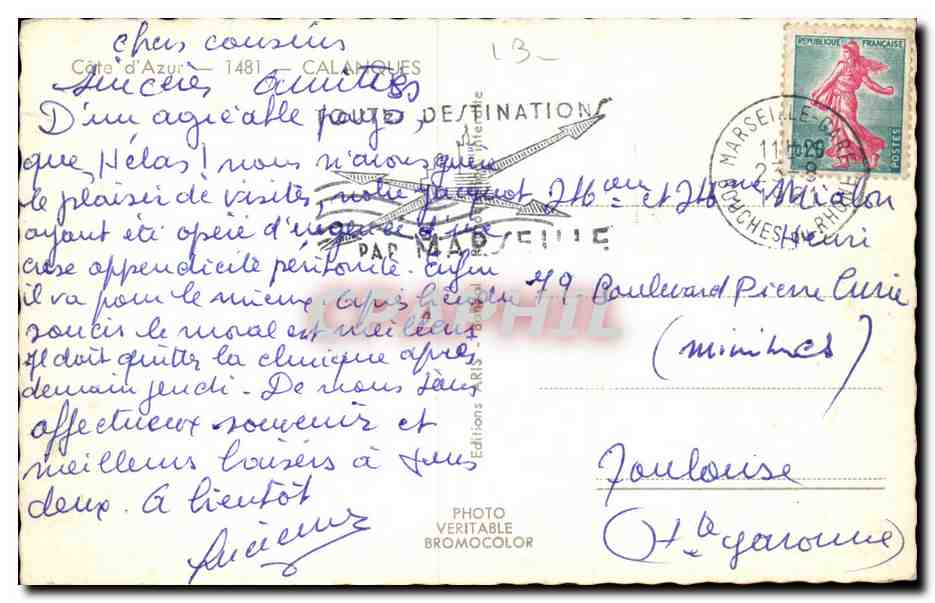 chers cousins
Côte d'Azur - 1481 - CALANQUES
Sincères amitiés
D'un agréable pays,
que, Hélas! nous n'avons guère
le plaisir de visiter, notre Jacquot
ayant été opéré d'urgence d'une
crise appendicite péritonite. Enfin
il va pour le mieux après bien du
soucis le moral est meilleur
Il doit quitter la clinique après
demain jeudi. De nous tous
affectueux souvenirs et
meilleurs baisers à tous
deux. A bientôt
Lucienne
13
TOUTES DESTINATIONS
PAR MARSEILLE
REPUBLIQUE FRANÇAISE
POSTES
MARSEILLE-GARE
BOUCHES DU RHONE
Editions "ARIS"
PHOTO
VERITABLE
BROMOCOLOR
CPAPHIL
et Mme Mialon
Henri
79 Boulevard Pierre Curie
(Minimes)
Toulouse
(Hte Garonne)